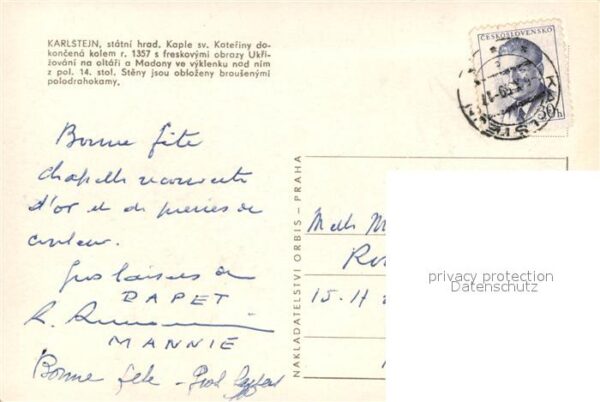 KARLŠTEJN, státní hrad. Kaple sv. Kateřiny do-
končená kolem r. 1357 s freskovými obrazy Ukři-
žování na oltáři a Madony ve výklenku nad ním
z pol. 14. stol. Stěny jsou obloženy broušenými
polodrahokamy.
ČESKOSLOVENSKO
30h
Bonne fête
chapelle recouverte
d'or et de pierres de
couleur.
Gros baisers de
DAPET
MANNIE
Bonne fête
NAKLADATELSTVÍ ORBIS – PRAHA
15.H
privacy protection
Datenschutz